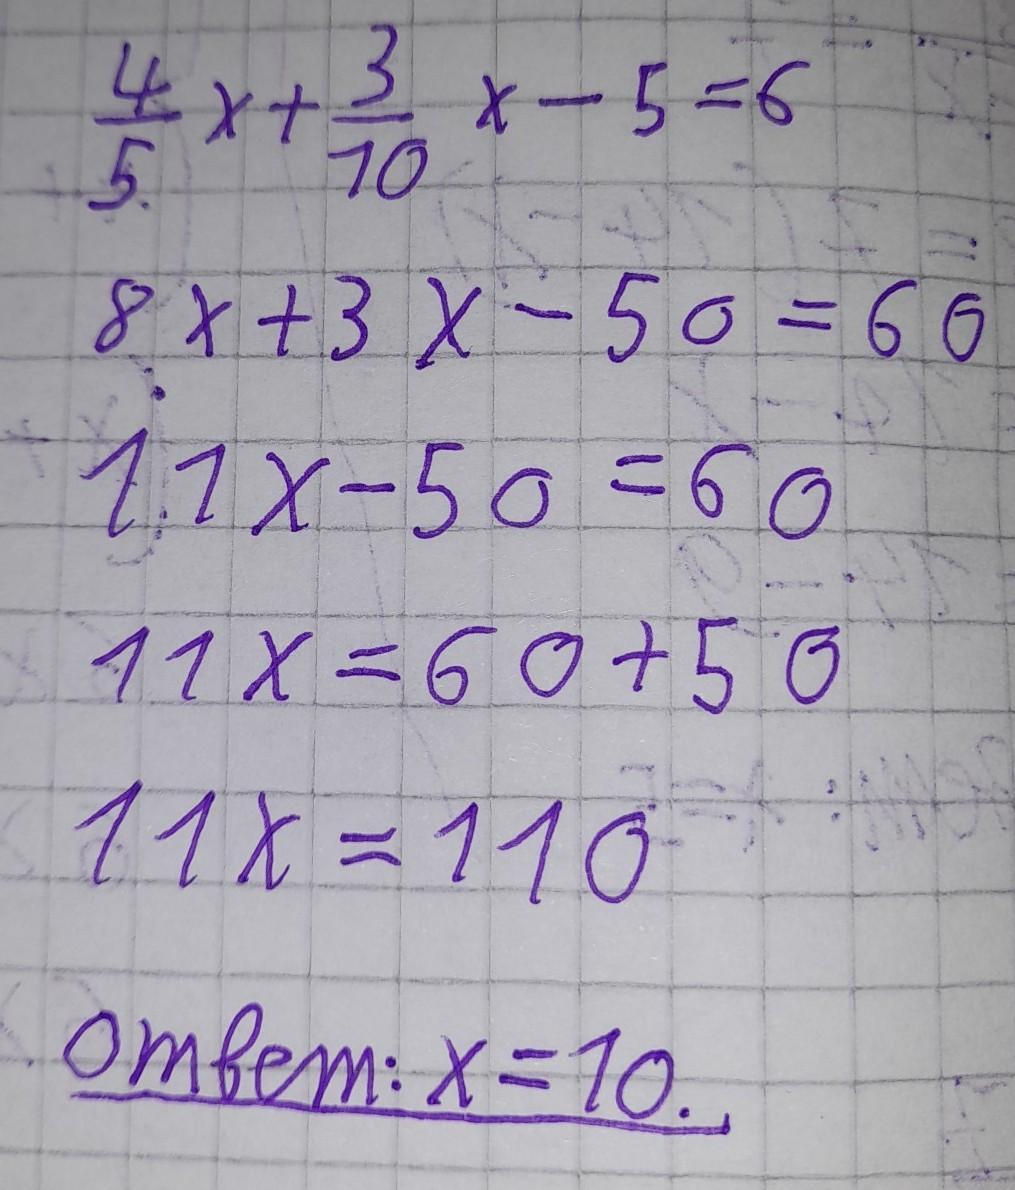 4/5 x + 3/10 x - 5 = 6
8x + 3x - 50 = 60
11x - 50 = 60
11x = 60 + 50
11x = 110
ответ: x = 10.